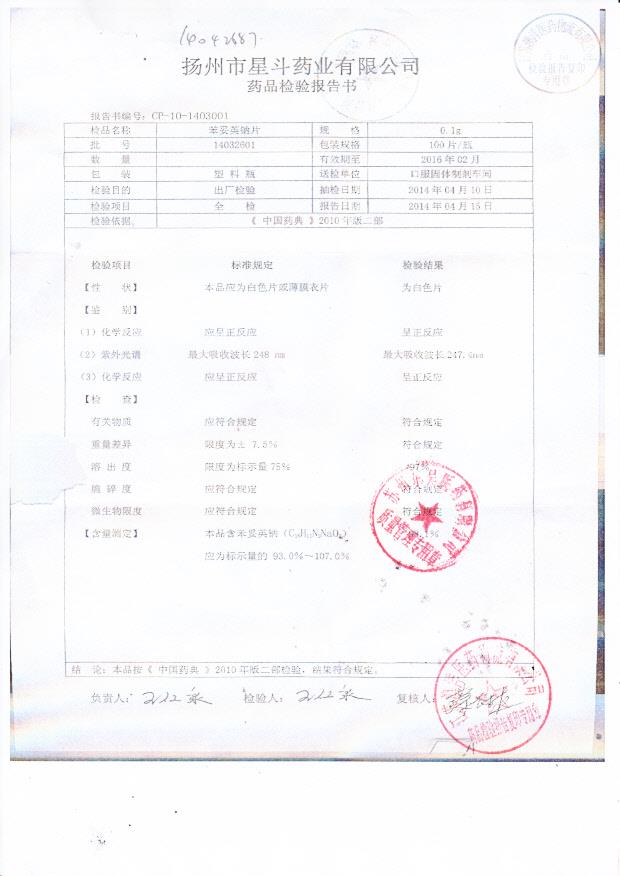 14042687
扬州市星斗药业有限公司
药品检验报告书
检验报告复印
专用章
报告书编号：CP-10-1403001
检品名称 苯妥英钠片 规 格 0.1g
批 号 14032601 包装规格 100片/瓶
数 量 有效期至 2016年02月
包 装 塑料瓶 送检单位 口服固体制剂车间
检验目的 出厂检验 抽检日期 2014年04月10日
检验项目 全 检 报告日期 2014年04月15日
检验依据 《中国药典》2010年版二部
检验项目 标准规定 检验结果
【性 状】 本品应为白色片或薄膜衣片 为白色片
【鉴 别】
（1）化学反应 应呈正反应 呈正反应
（2）紫外光谱 最大吸收波长248 nm 最大吸收波长247.4nm
（3）化学反应 应呈正反应 呈正反应
【检 查】
有关物质 应符合规定 符合规定
重量差异 限度为± 7.5% 符合规定
溶出度 限度为标示量75% 97%
脆碎度 应符合规定 符合规定
微生物限度 应符合规定 符合规定
【含量测定】 本品含苯妥英钠（C₁₅H₁₁N₂NaO₂）
应为标示量的 93.0%～107.0%
质量管理专用章
结 论：本品按《中国药典》2010年版二部检验，结果符合规定。
负责人： 检验人： 复核人：